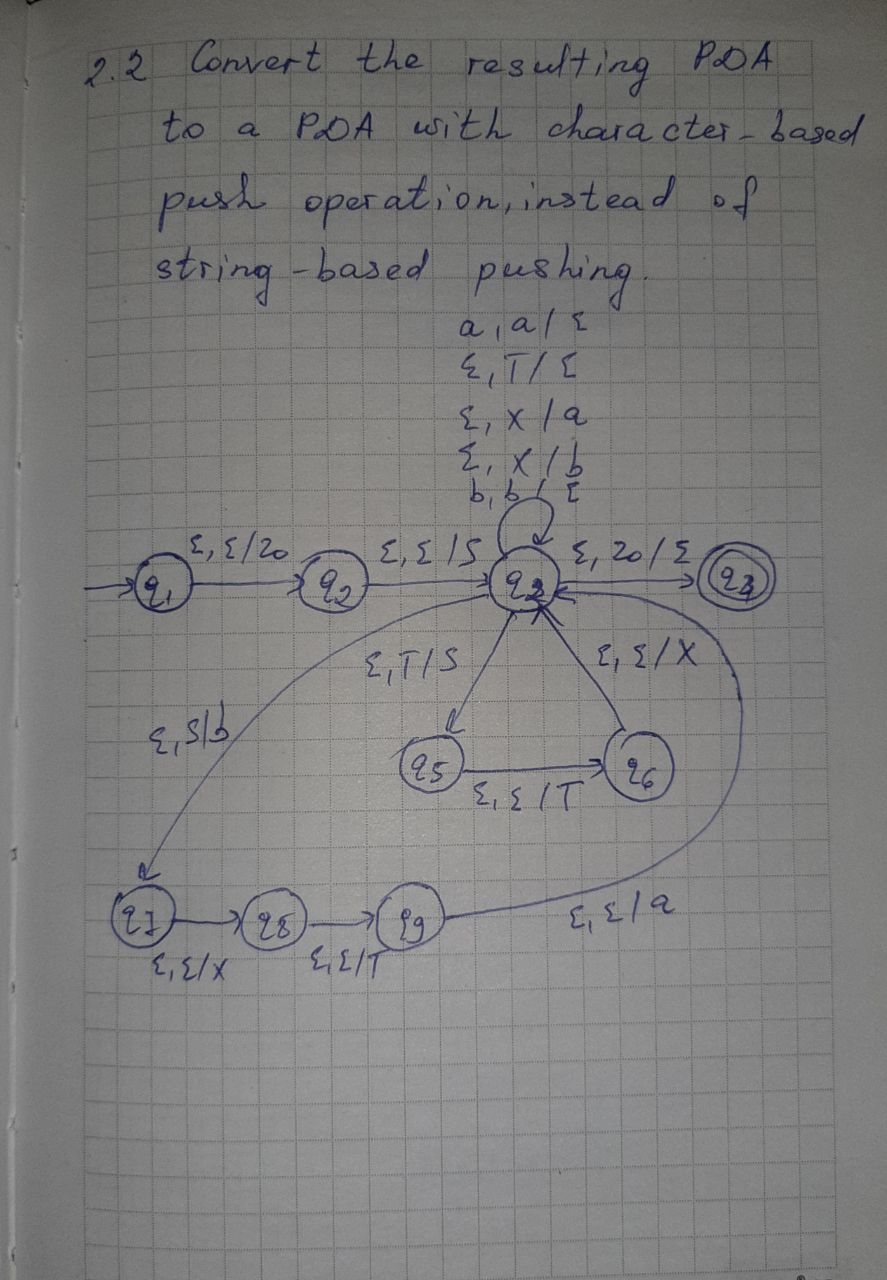 2.2 Convert the resulting PDA
to a PDA with character-based
push operation, instead of
string-based pushing.
a, a / ε
ε, T / ε
ε, X / a
ε, X / b
b, b / ε
ε, ε / z0
ε, ε / S
ε, z0 / ε
q1
q2
q3
q4
ε, T / S
ε, ε / X
ε, S / b
q5
q6
ε, ε / T
q7
q8
q9
ε, ε / a
ε, ε / X
ε, ε / T